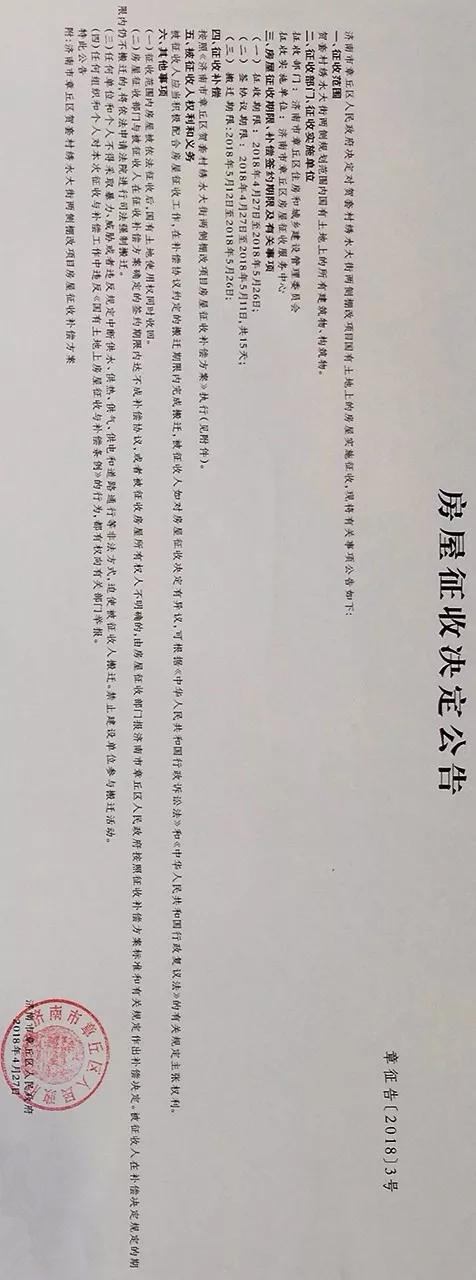 房屋征收决定公告
章征告〔2018〕3号
济南市章丘区人民政府决定对贺套村绣水大街两侧棚改项目国有土地上的房屋实施征收，现将有关事项公告如下：
一、征收范围
贺套村绣水大街两侧规划范围内国有土地上的所有建筑物、构筑物。
二、征收部门、征收实施单位
征收部门：济南市章丘区住房和城乡建设管理委员会
征收实施单位：济南市章丘区房屋征收服务中心
三、房屋征收期限、补偿签约期限及有关事项
（一）征收期限：2018年4月27日至2018年5月26日；
（二）签协议期限：2018年4月27日至2018年5月11日，共15天；
（三）搬迁期限：2018年5月12日至2018年5月26日；
四、征收补偿
按照《济南市章丘区贺套村绣水大街两侧棚改项目房屋征收补偿方案》执行（见附件）。
五、被征收人权利和义务
被征收人应当积极配合房屋征收工作，在补偿协议约定的搬迁期限内完成搬迁，被征收人如对房屋征收决定有异议，可根据《中华人民共和国行政诉讼法》和《中华人民共和国行政复议法》的有关规定主张权利。
六、其他事项
（一）征收范围内房屋被依法征收后，国有土地使用权同时收回。
（二）房屋征收部门与被征收人在征收补偿方案确定的签约期限内达不成补偿协议，或者被征收房屋所有权人不明确的，由房屋征收部门报济南市章丘区人民政府按照征收补偿方案标准和有关规定作出补偿决定。被征收人在补偿决定规定的期
限内仍不搬迁的，将依法申请法院进行司法强制搬迁。
（三）任何单位和个人不得采取暴力、威胁或者违反规定中断供水、供热、供气、供电和道路通行等非法方式，迫使被征收人搬迁。禁止建设单位参与搬迁活动。
（四）任何组织和个人对本次征收与补偿工作中违反《国有土地上房屋征收与补偿条例》的行为，都有权向有关部门举报。
特此公告
附：济南市章丘区贺套村绣水大街两侧棚改项目房屋征收补偿方案
济南市章丘区人民政府
2018年4月27日
济南市章丘区人民政府